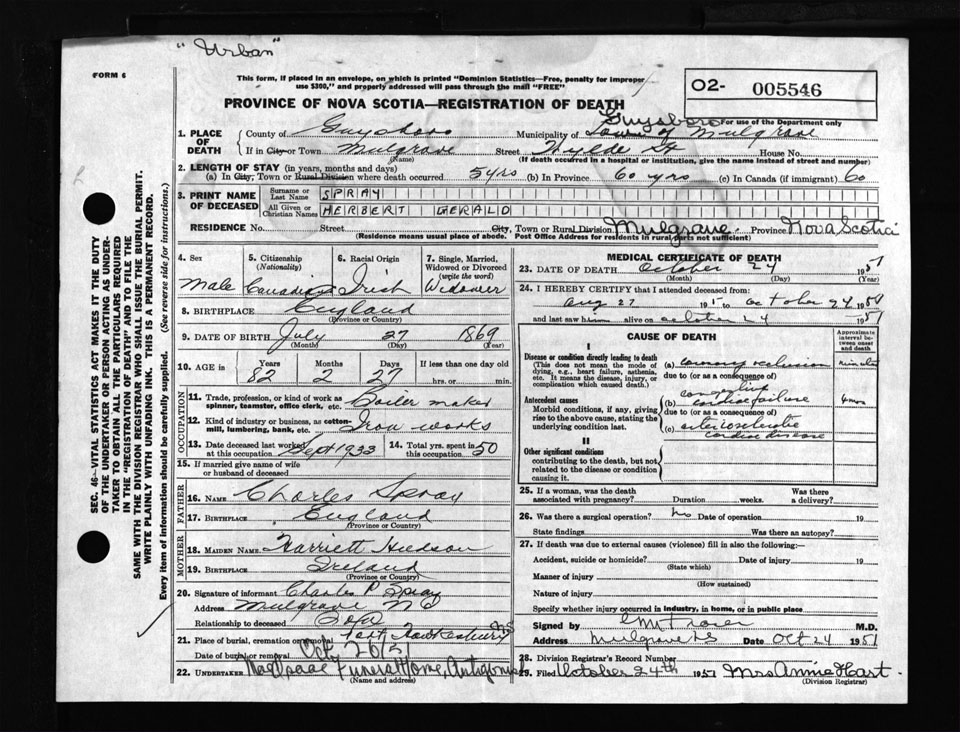 "Urban"
FORM 6
This form, if placed in an envelope, on which is printed "Dominion Statistics—Free, penalty for improper
use $300," and properly addressed will pass through the mail "FREE"
O2- 005546
For use of the Department only
PROVINCE OF NOVA SCOTIA—REGISTRATION OF DEATH
Guysboro
1. PLACE OF DEATH County of Guysboro Municipality of Town of Mulgrave
If in City or Town Mulgrave (Name) Street Wylde St House No.
(If death occurred in a hospital or institution, give the name instead of street and number)
2. LENGTH OF STAY (in years, months and days)
(a) In City, Town or Rural Division where death occurred 5 yrs (b) In Province 60 yrs (c) In Canada (if immigrant) 60
3. PRINT NAME OF DECEASED Surname or Last Name SPRAY
All Given or Christian Names HERBERT GERALD
RESIDENCE No. Street City, Town or Rural Division Mulgrave Province Nova Scotia
(Residence means usual place of abode. Post Office Address for residents in rural parts not sufficient)
4. Sex Male
5. Citizenship (Nationality) Canadian
6. Racial Origin Irish
7. Single, Married, Widowed or Divorced (write the word) Widower
8. BIRTHPLACE England
(Province or Country)
9. DATE OF BIRTH July 27 1869
(Month) (Day) (Year)
10. AGE in Years Months Days If less than one day
82 2 27 hrs. or min.
OCCUPATION
11. Trade, profession, or kind of work as spinner, teamster, office clerk, etc. Boiler maker
12. Kind of industry or business, as cotton-mill, lumbering, bank, etc. Iron works
13. Date deceased last worked at this occupation Sept 1933
14. Total yrs. spent in this occupation 50
15. If married give name of wife or husband of deceased
FATHER
16. NAME Charles Spray
17. BIRTHPLACE England
(Province or Country)
MOTHER
18. MAIDEN NAME Harriett Hudson
19. BIRTHPLACE Ireland
(Province or Country)
20. Signature of informant Charles P Spray
Address Mulgrave NS
Relationship to deceased Son
21. Place of burial, cremation or removal Port Hawkesbury NS
Date of burial or removal Oct 26/51
22. UNDERTAKER MacIsaac Funeral Home, Antigonish
(Name and address)
MEDICAL CERTIFICATE OF DEATH
23. DATE OF DEATH October 24 1951
(Month) (Day) (Year)
24. I HEREBY CERTIFY that I attended deceased from:
Aug 27 195 to October 24 1951
and last saw him alive on October 24 1951
CAUSE OF DEATH
Approximate interval between onset and death
I
Disease or condition directly leading to death
(This does not mean the mode of dying, e.g., heart failure, asthenia, etc. It means the disease, injury, or complication which caused death.)
(a) coronary occlusion minutes
due to (or as a consequence of)
Antecedent causes
Morbid conditions, if any, giving rise to the above cause, stating the underlying condition last.
(b) congestive cardiac failure
due to (or as a consequence of)
(c) arteriosclerotic cardiac disease
II
Other significant conditions
contributing to the death, but not related to the disease or condition causing it.
25. If a woman, was the death associated with pregnancy? Duration weeks. Was there a delivery?
26. Was there a surgical operation? no Date of operation 19
State findings Was there an autopsy?
27. If death was due to external causes (violence) fill in also the following:—
Accident, suicide or homicide? Date of injury 19
(State which)
Manner of injury
(How sustained)
Nature of injury
Specify whether injury occurred in industry, in home, or in public place
Signed by M.D.
Address Mulgrave NS Date Oct 24 1951
28. Division Registrar's Record Number
29. Filed October 24th 1951 Mrs Annie Hart
(Division Registrar)
SEC. 46—VITAL STATISTICS ACT MAKES IT THE DUTY
OF THE UNDERTAKER OR PERSON ACTING AS UNDER-
TAKER TO OBTAIN ALL THE PARTICULARS REQUIRED
IN THE "REGISTRATION OF DEATH" AND TO FILE THE
SAME WITH THE DIVISION REGISTRAR WHO SHALL ISSUE THE BURIAL PERMIT.
WRITE PLAINLY WITH UNFADING INK. THIS IS A PERMANENT RECORD.
Every item of information should be carefully supplied. (See reverse side for instructions.)